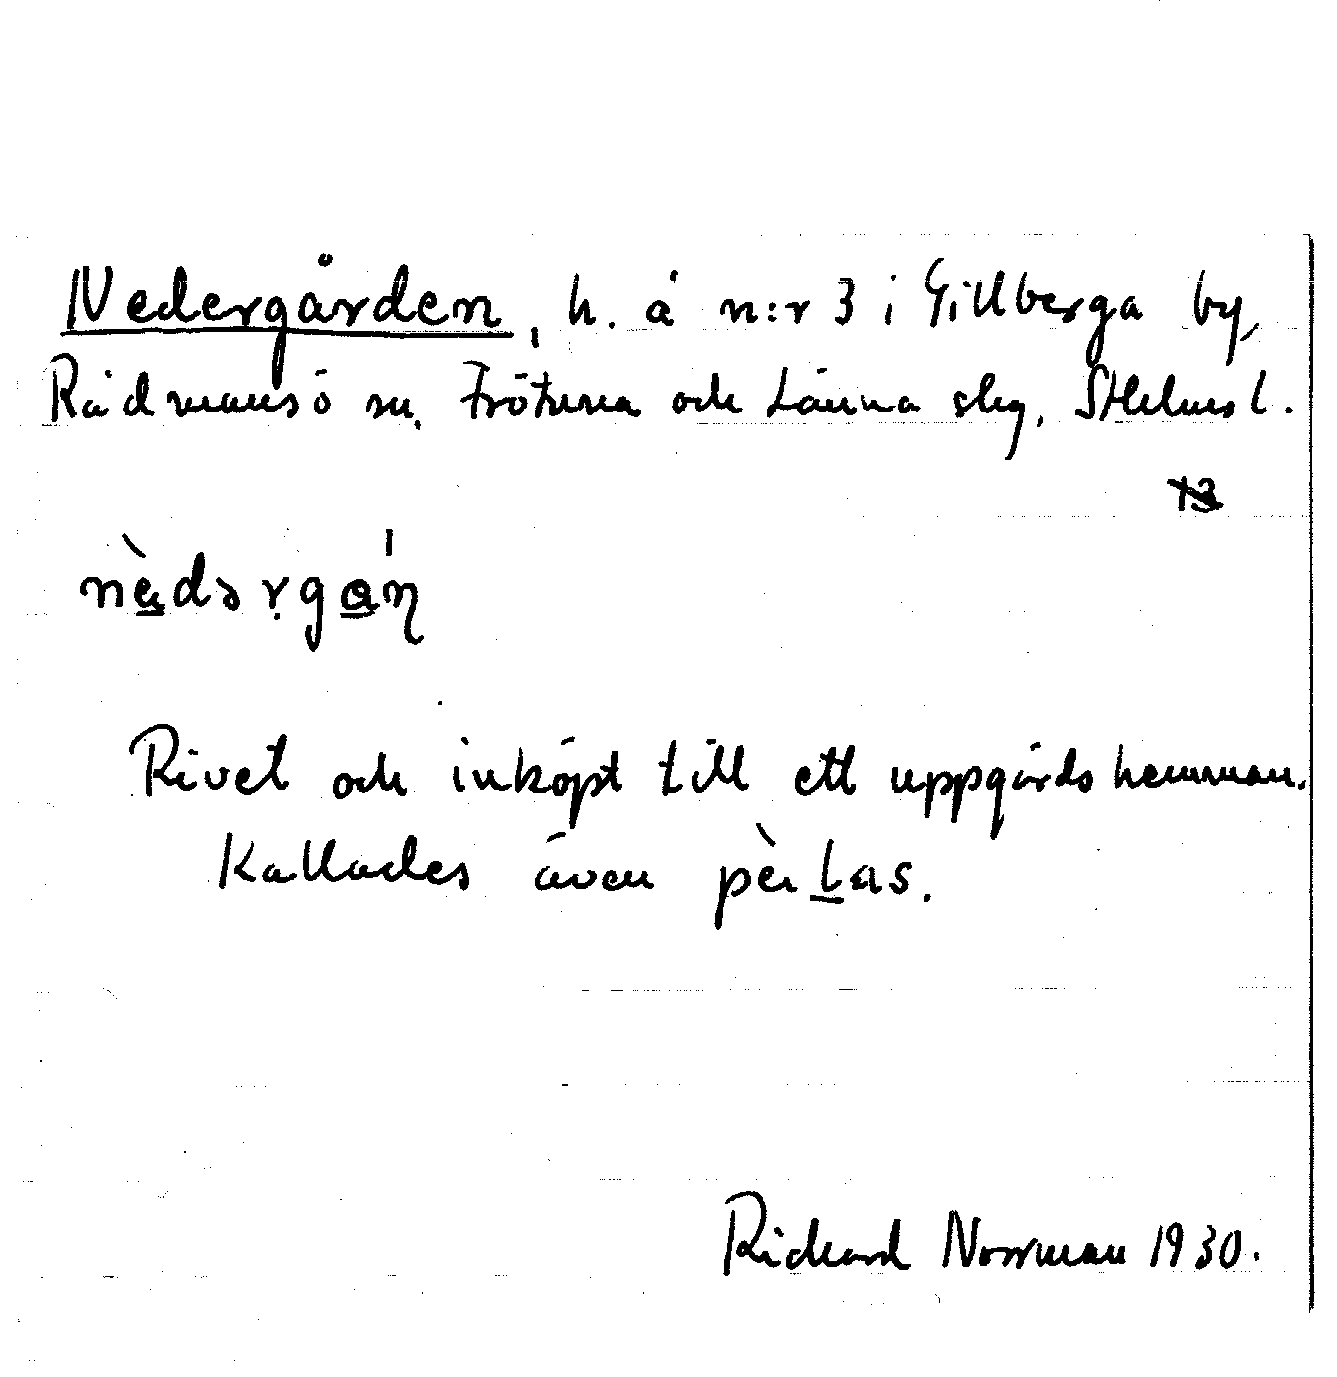 Nedergården, h. å n:r 3 i Gillberga by,
Rådmansö sn, Frötuna och Länna skg, Sthlms l.
13
nèdərgán
Rivet och inköpt till ett uppgårdshemman.
Kallades även pèlas.
Richard Norrman 1930.